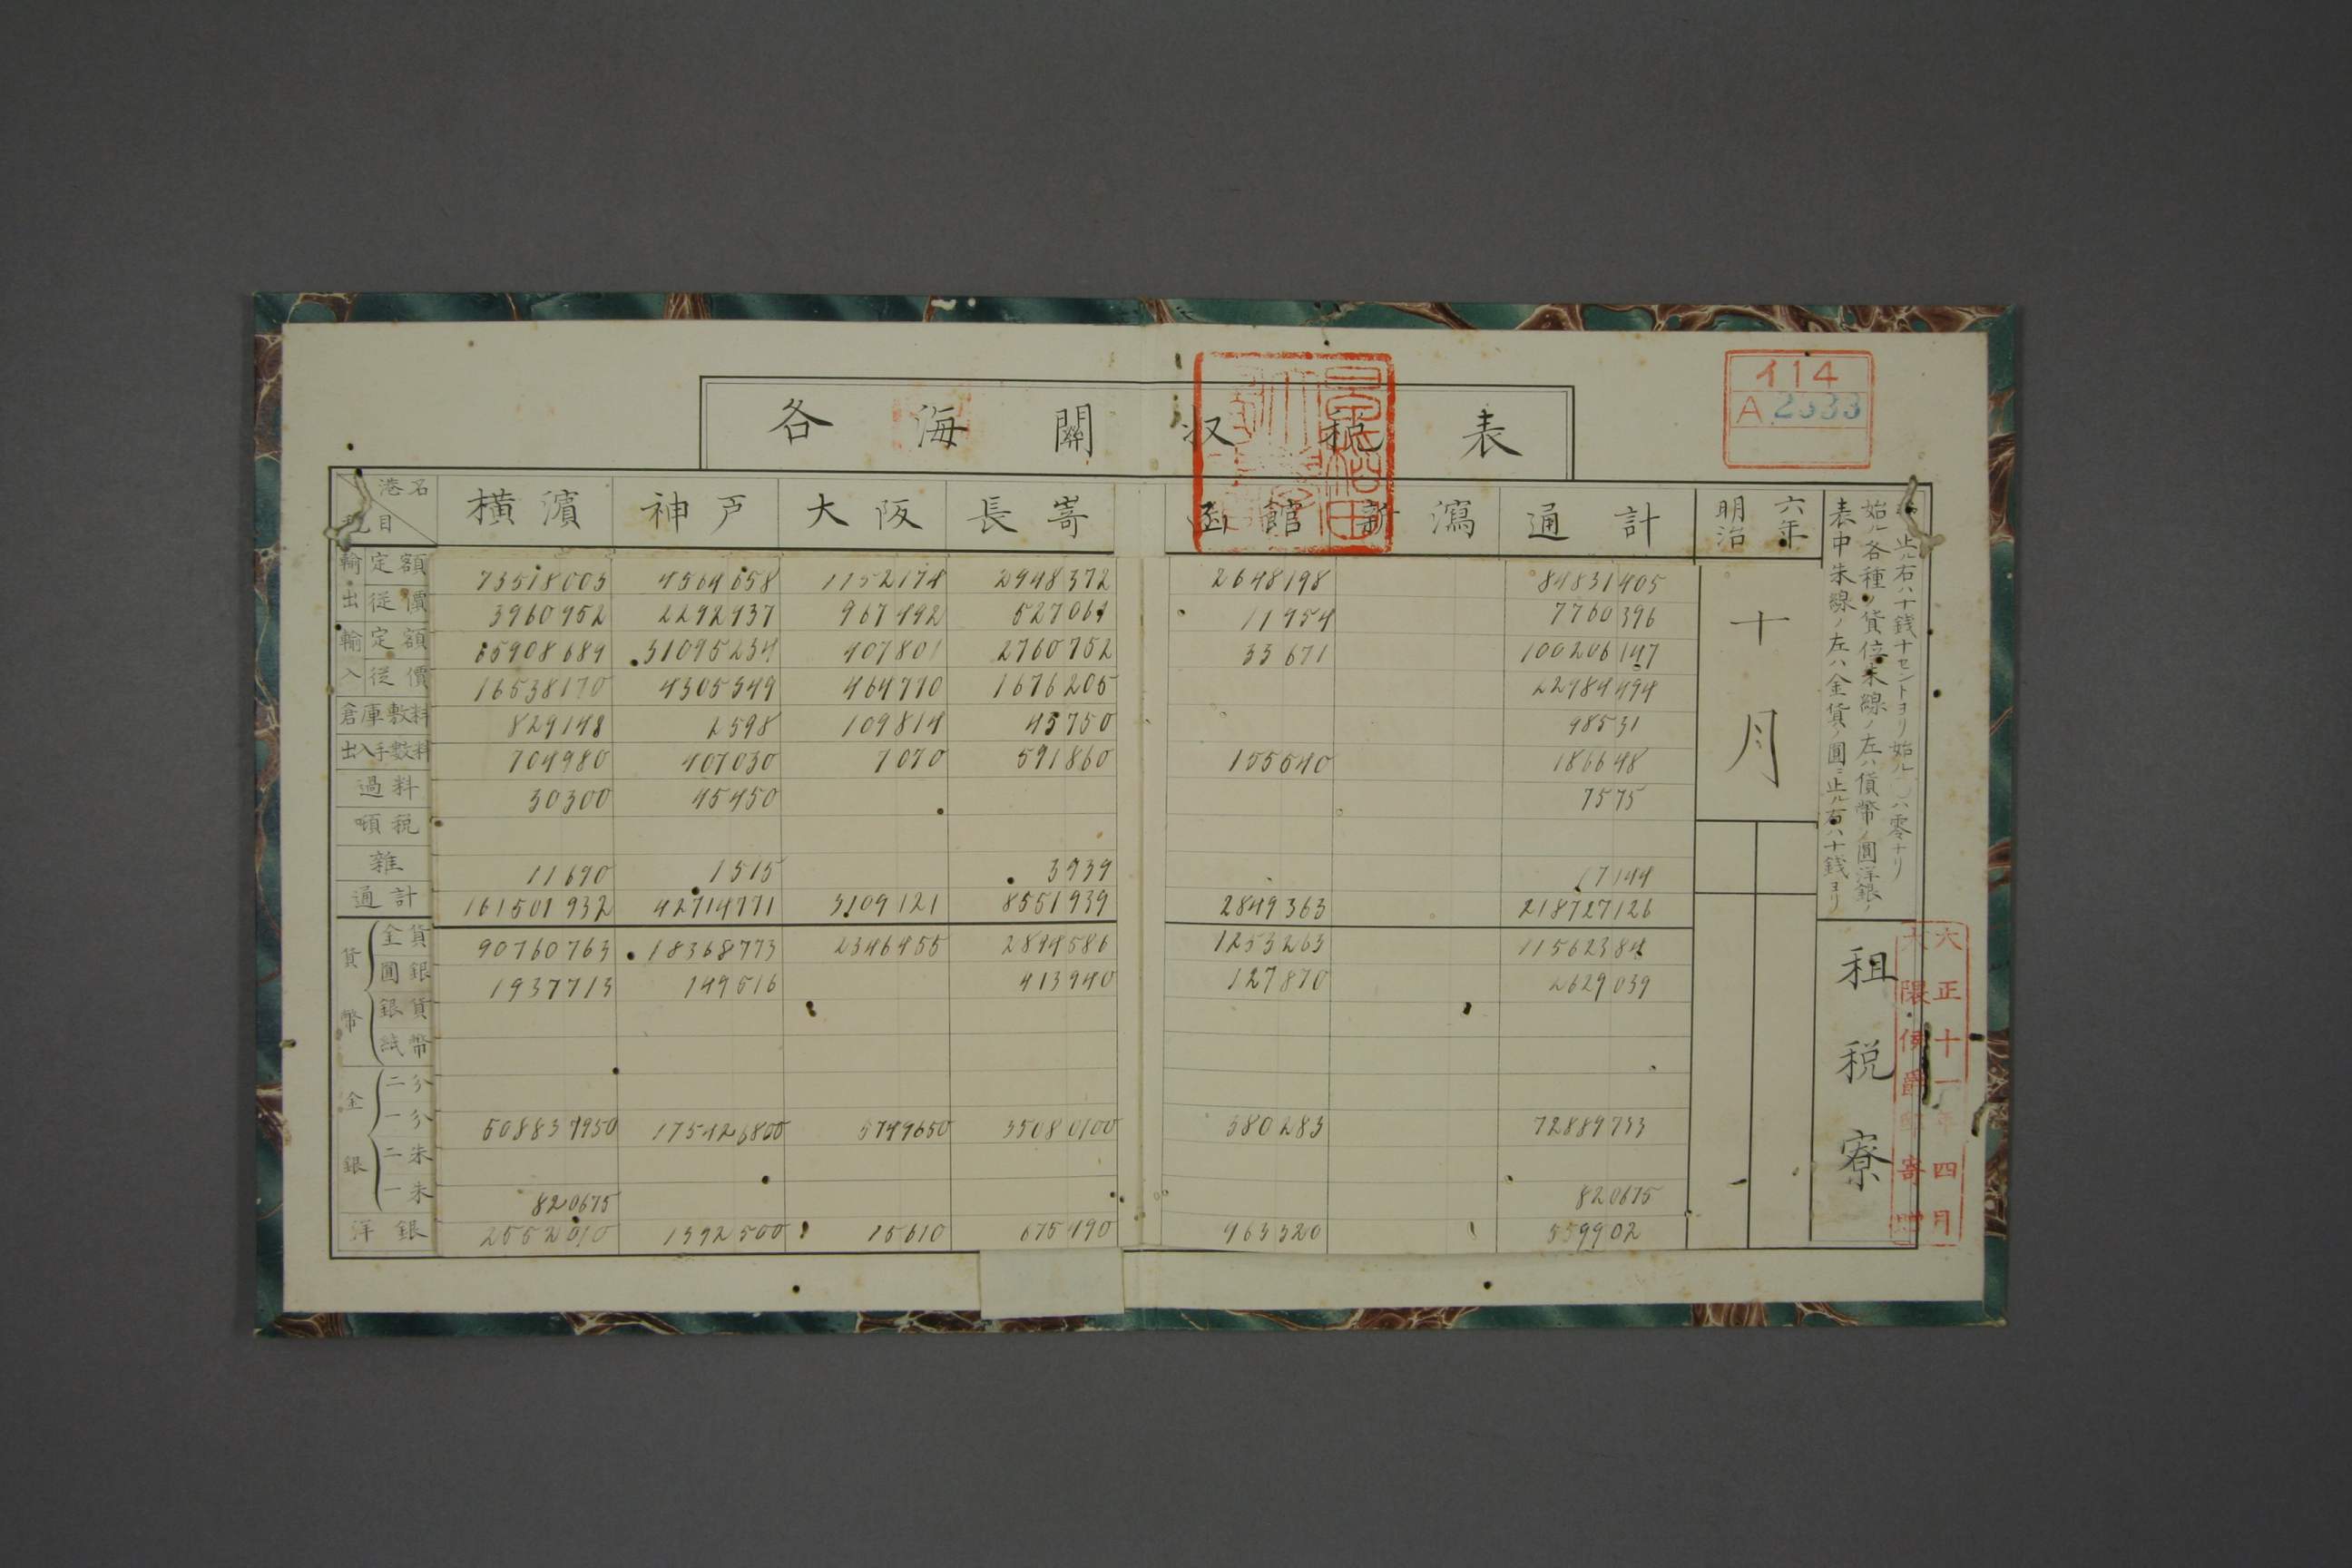 各海關収税表
イ14
A 2333
港名
税目
横濱 神戸 大阪 長崎 函館 新瀉 通計
明治六年
十月
輸出 定額 73518003 4564658 1152174 2948372 2648198 84831405
従價 3960952 2292937 967492 527061 11954 7760396
輸入 定額 65908689 31095234 407801 2760752 33671 100206147
従價 16538170 4305349 464770 1676205 22984494
倉庫敷料 829148 2598 109814 43750 98531
出入手數料 704980 407030 7070 591860 155540 186648
過料 30300 45450 7575
噸税
雑 11690 1515 3939 17144
通計 161501932 42714771 3109121 8551939 2849363 218727126
貨幣 金貨 90760763 18368773 2346455 2894586 1253263 11562384
圓銀 1937713 149516 413940 127870 2629039
銀貨
紙幣
金銀 二分
一分 508837950 175426800 5749650 35080100 380283 72889733
二朱
一朱 820675 820675
洋銀 2552010 1392500 15610 675190 963320 559902
表中朱線ノ左ハ金貨ノ圓ニ止ル右ハ十銭ヨリ
始ル各種ノ貨位朱線ノ左ハ貨幣ノ圓洋銀ノ
止ル右ハ十銭十セントヨリ始ル〇ハ零ナリ
租税寮
大正十一年四月
大隈侯爵家寄贈